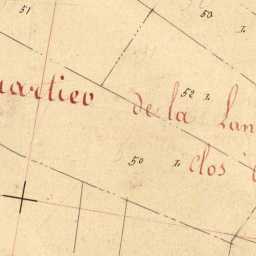 51 50 L
uartier de la 52 L Lan
50 L Clos